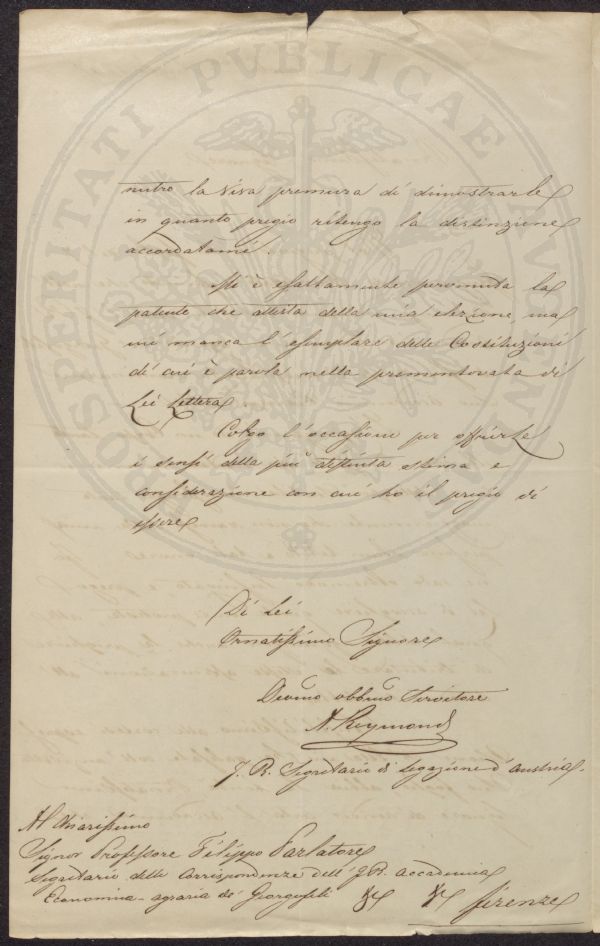 nutro la viva premura di dimostrarle
in quanto pregio ritengo la distinzione
accordatami.
Mi è esattamente pervenuta la
patente che attesta della mia elezione, ma
mi manca l'esemplare delle Costituzioni
di cui è parola nella prementovata di
Lei Lettera.
Colgo l'occasione per offrirle
i sensi della più distinta stima e
considerazione con cui ho il pregio di
essere
Di Lei
Ornatissimo Signore
Devmo obbmo Servitore
A. Reymond
J. R. Segretario di Legazione d'Austria.
Al Chiarissimo
Signor Professore Filippo Parlatore
Segretario delle Corrispondenze dell' J. R. Accademia
Economica-agraria dei Georgofili
Firenze
PROSPERITATI PVBLICAE